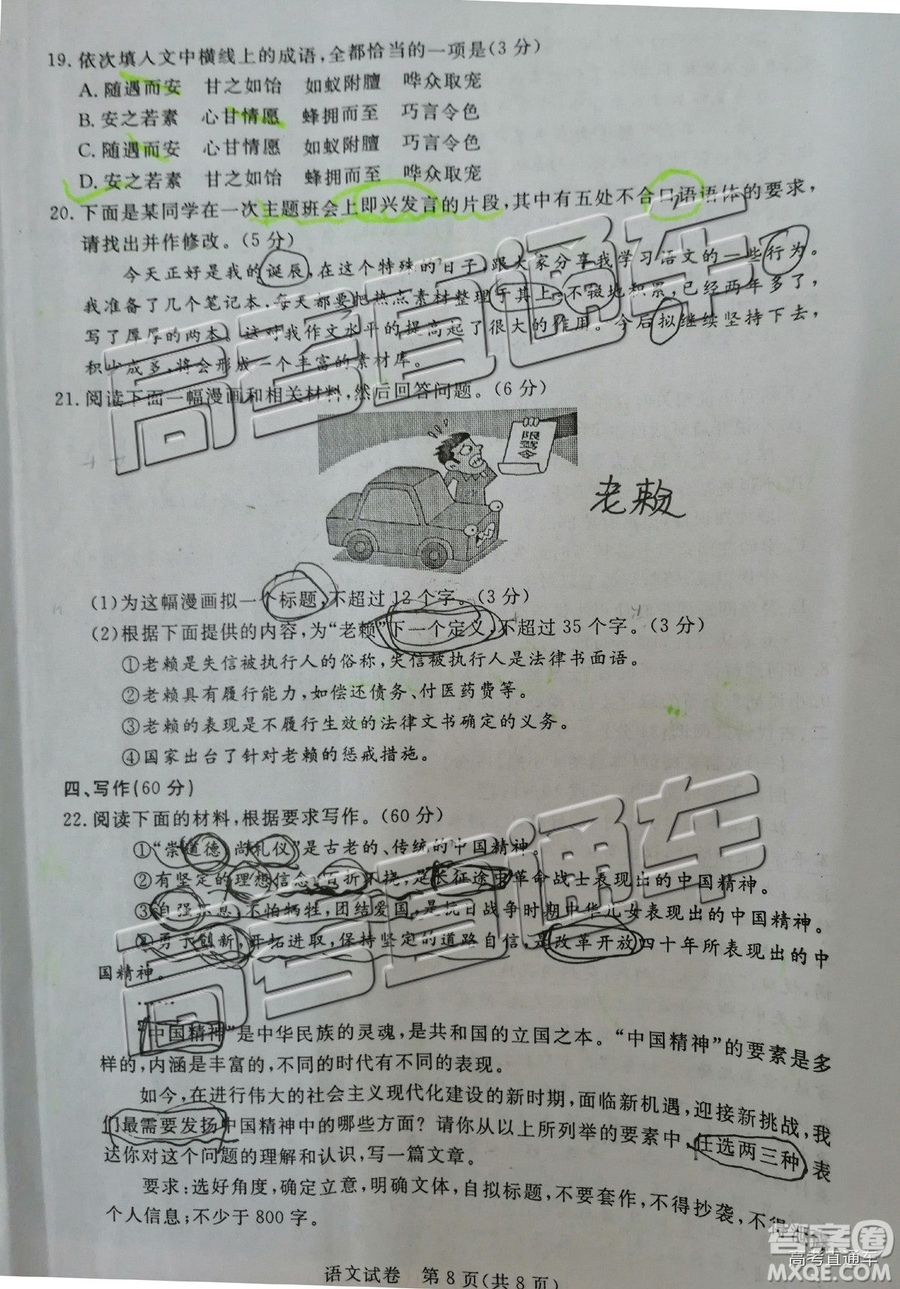 19. 依次填入文中横线上的成语,全都恰当的一项是(3分)
A. 随遇而安 甘之如饴 如蚁附膻 哗众取宠
B. 安之若素 心甘情愿 蜂拥而至 巧言令色
C. 随遇而安 心甘情愿 如蚁附膻 巧言令色
D. 安之若素 甘之如饴 蜂拥而至 哗众取宠
20. 下面是某同学在一次主题班会上即兴发言的片段,其中有五处不合口语语体的要求,
请找出并作修改。(5分)
今天正好是我的诞辰,在这个特殊的日子,跟大家分享我学习语文的一些行为。
我准备了几个笔记本,每天都要把热点素材整理于其上,不辍地积累,已经两年多了,
写了厚厚的两本,这对我作文水平的提高起了很大的作用。今后拟继续坚持下去,
积少成多,将会形成一个丰富的素材库。
21. 阅读下面一幅漫画和相关材料,然后回答问题。(6分)
限驾令
老赖
(1)为这幅漫画拟一个标题,不超过12个字。(3分)
(2)根据下面提供的内容,为“老赖”下一个定义,不超过35个字。(3分)
①老赖是失信被执行人的俗称,失信被执行人是法律书面语。
②老赖具有履行能力,如偿还债务、付医药费等。
③老赖的表现是不履行生效的法律文书确定的义务。
④国家出台了针对老赖的惩戒措施。
四、写作(60分)
22. 阅读下面的材料,根据要求写作。(60分)
①“崇道德、尚礼仪”是古老的、传统的中国精神。
②有坚定的理想信念,百折不挠,是长征途中革命战士表现出的中国精神。
③自强不息,不怕牺牲,团结爱国,是抗日战争时期中华儿女表现出的中国精神。
④勇于创新,开拓进取,保持坚定的道路自信,是改革开放四十年所表现出的中
国精神。
……
“中国精神”是中华民族的灵魂,是共和国的立国之本。“中国精神”的要素是多
样的,内涵是丰富的,不同的时代有不同的表现。
如今,在进行伟大的社会主义现代化建设的新时期,面临新机遇,迎接新挑战,我
们最需要发扬中国精神中的哪些方面?请你从以上所列举的要素中,任选两三种,表
达你对这个问题的理解和认识,写一篇文章。
要求:选好角度,确定立意,明确文体,自拟标题,不要套作,不得抄袭,不得
个人信息;不少于800字。
语文试卷 第8页(共8页)
高考直通车
高考直通车
高考直通车
答案圈
MXQE.COM